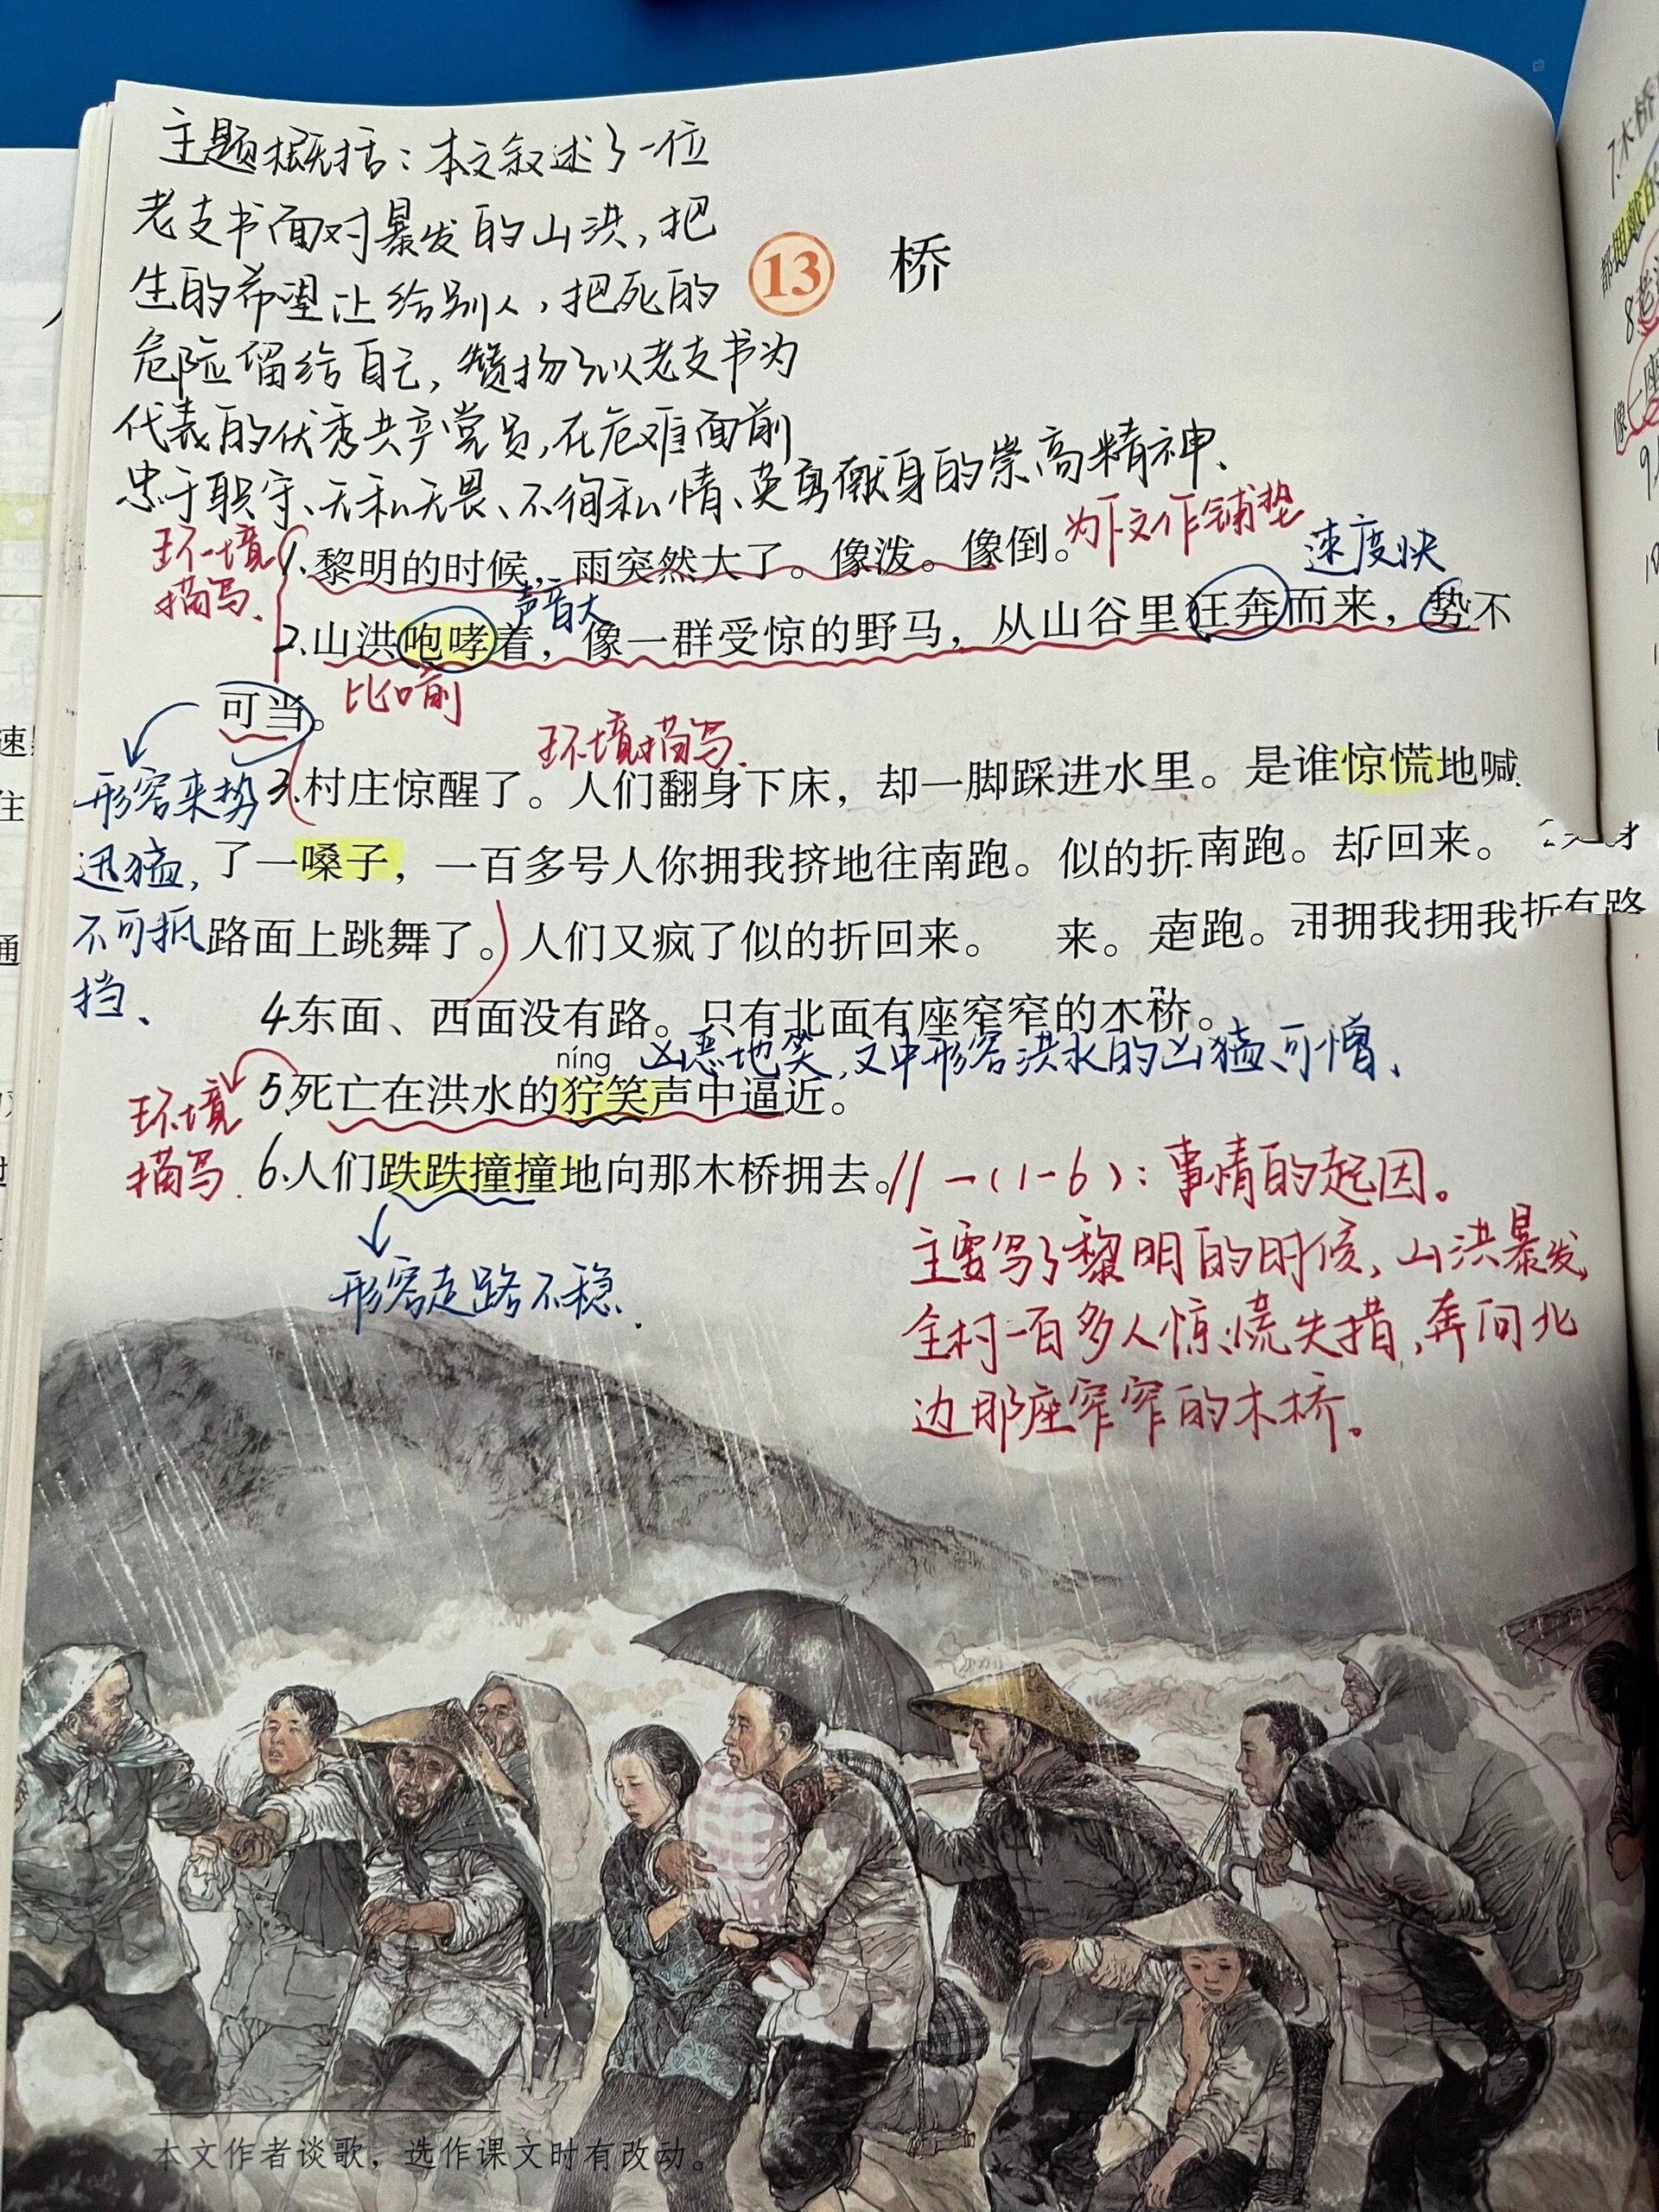 主题概括：本文叙述了一位
老支书面对暴发的山洪，把
生的希望让给别人，把死的
危险留给自己，赞扬了以老支书为
代表的优秀共产党员，在危难面前
忠于职守、无私无畏、不徇私情、英勇献身的崇高精神、
13 桥
环境
描写、
1.黎明的时候，雨突然大了。像泼。像倒。
为下文作铺垫
速度快
声音大
2.山洪咆哮着，像一群受惊的野马，从山谷里狂奔而来，势不
可当。
比喻
环境描写、
形容来势
迅猛，
不可抵
挡、
3.村庄惊醒了。人们翻身下床，却一脚踩进水里。是谁惊慌地喊
了一嗓子，一百多号人你拥我挤地往南跑。似的折南跑。却回来。
路面上跳舞了。人们又疯了似的折回来。 来。 跑。 拥我拥我折有路
4东面、西面没有路。只有北面有座窄窄的木桥。
níng
凶恶地笑，文中形容洪水的凶猛、可憎、
环境
描写、
5.死亡在洪水的狞笑声中逼近。
6.人们跌跌撞撞地向那木桥拥去。// 一(1-6)：事情的起因。
形容走路不稳、
主要写了黎明的时候，山洪暴发，
全村一百多人惊慌失措，奔向北
边那座窄窄的木桥。
本文作者谈歌，选作课文时有改动。
速
住
通
7.木桥
都拥戴的
8.老汉
像一座
9.
10